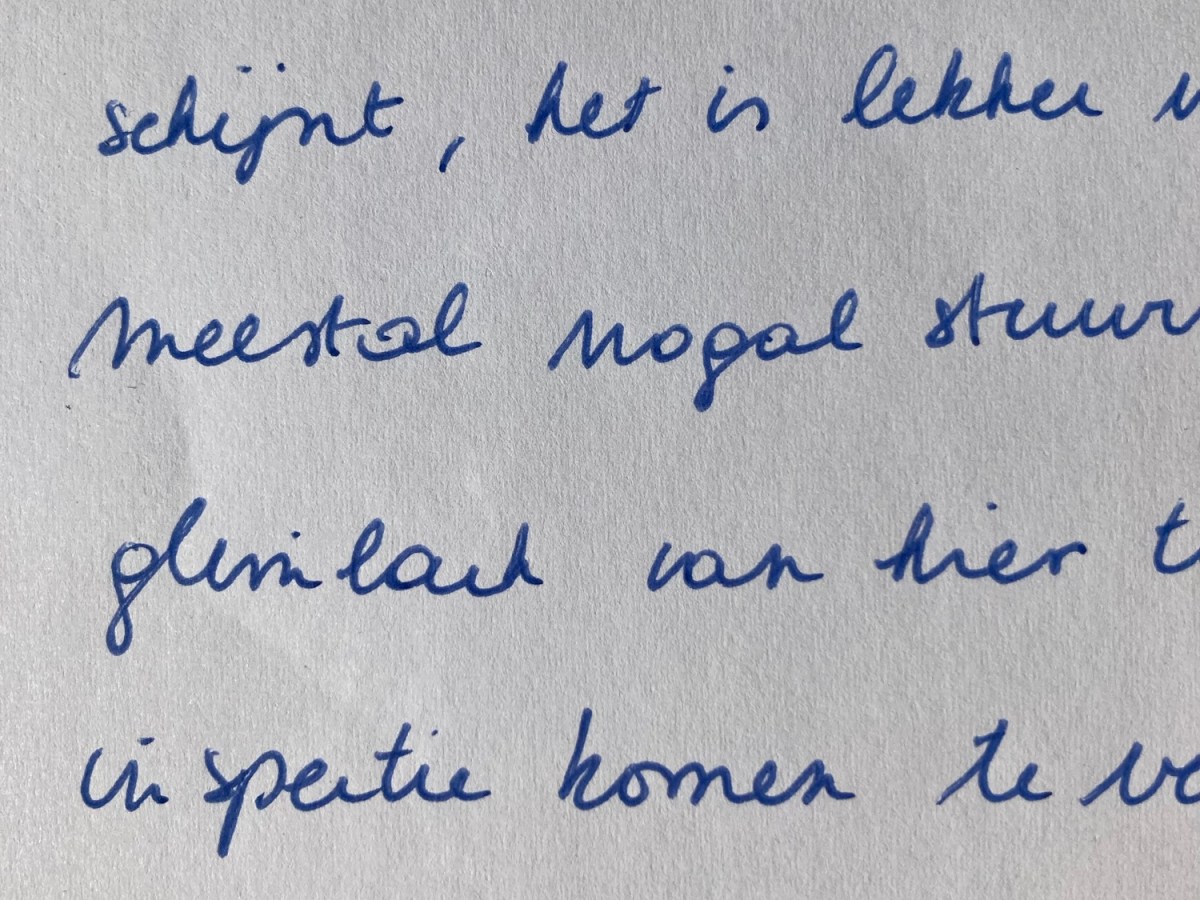 schijnt, het is lekker
meestal nogal
glimlach van hier
inspectie komen te